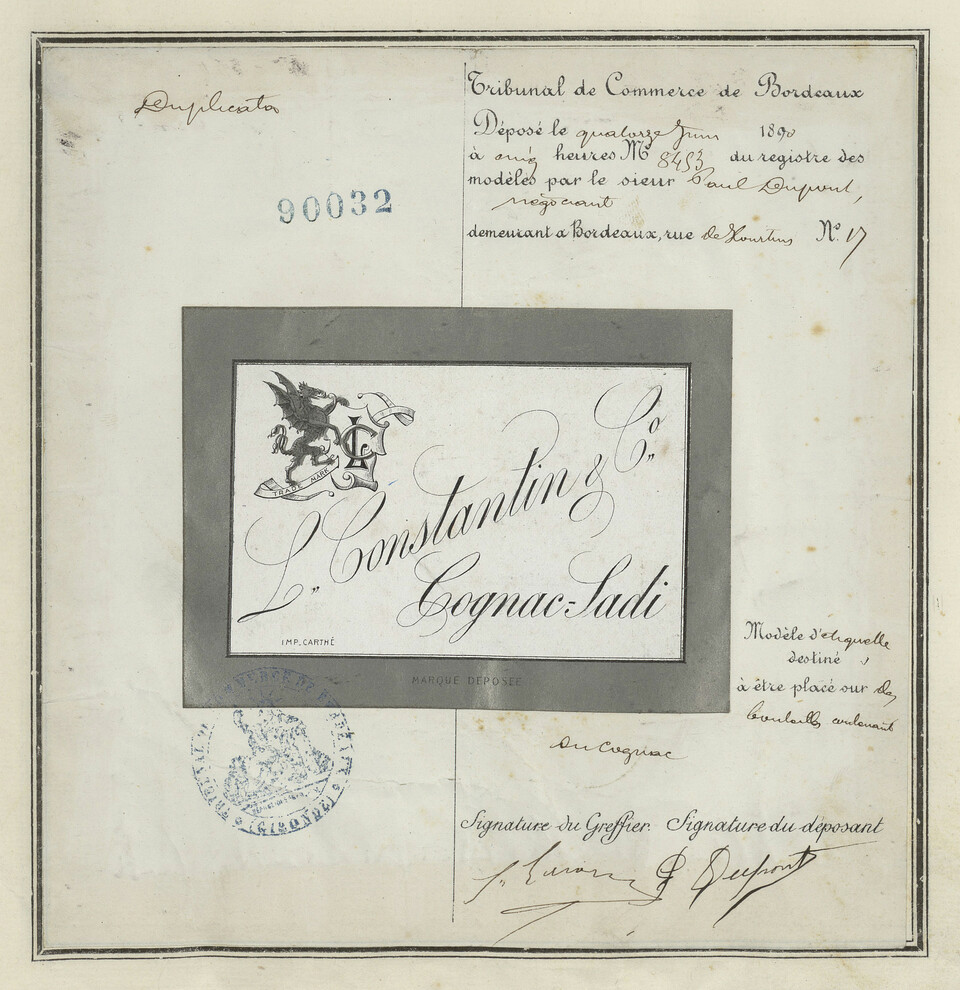 Duplicata
90032
Tribunal de Commerce de Bordeaux
Déposé le quatorze Juin 1890
à onze heures No 8453 du registre des
modèles par le sieur Paul Dupont,
négociant
demeurant a Bordeaux, rue de No. 17
TRADE MARK
LC
L. Constantin & Co.
Cognac=Sadi
IMP. CARTHÉ
MARQUE DÉPOSÉE
Modèle d'etiquette
destiné
à être placé sur des
bouteilles contenant
du cognac
TRIBUNAL DE COMMERCE DE BORDEAUX
(GIRONDE)
Signature du Greffier. Signature du déposant
P Dupont